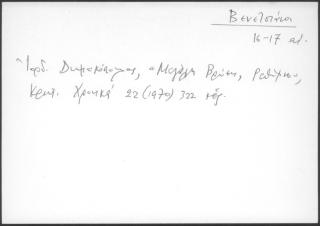 Βενετσιάνοι
16-17 αι.
Ἰορδ. Δημακόπουλος, «Μεγάλη Βρύση, Ρεθύμνου,
Κρητ. Χρονικά 22 (1970) 322 κἑξ.